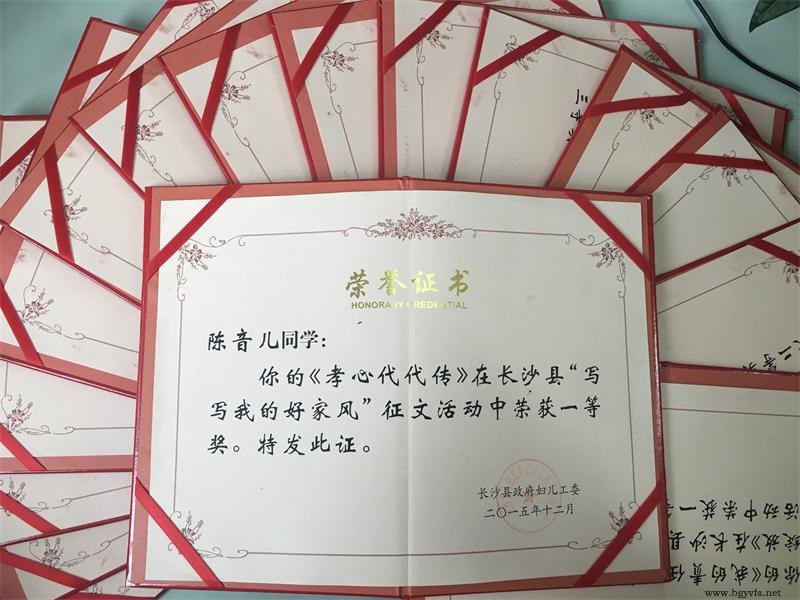 荣誉证书
HONORARY CREDENTIAL
陈音儿同学:
你的《孝心代代传》在长沙县“写
写我的好家风”征文活动中荣获一等
奖。特发此证。
长沙县政府妇儿工委
二〇一五年十二月
你的《我的责任
绽放》在长沙县
活动中荣获一等
www.bgyvfs.net